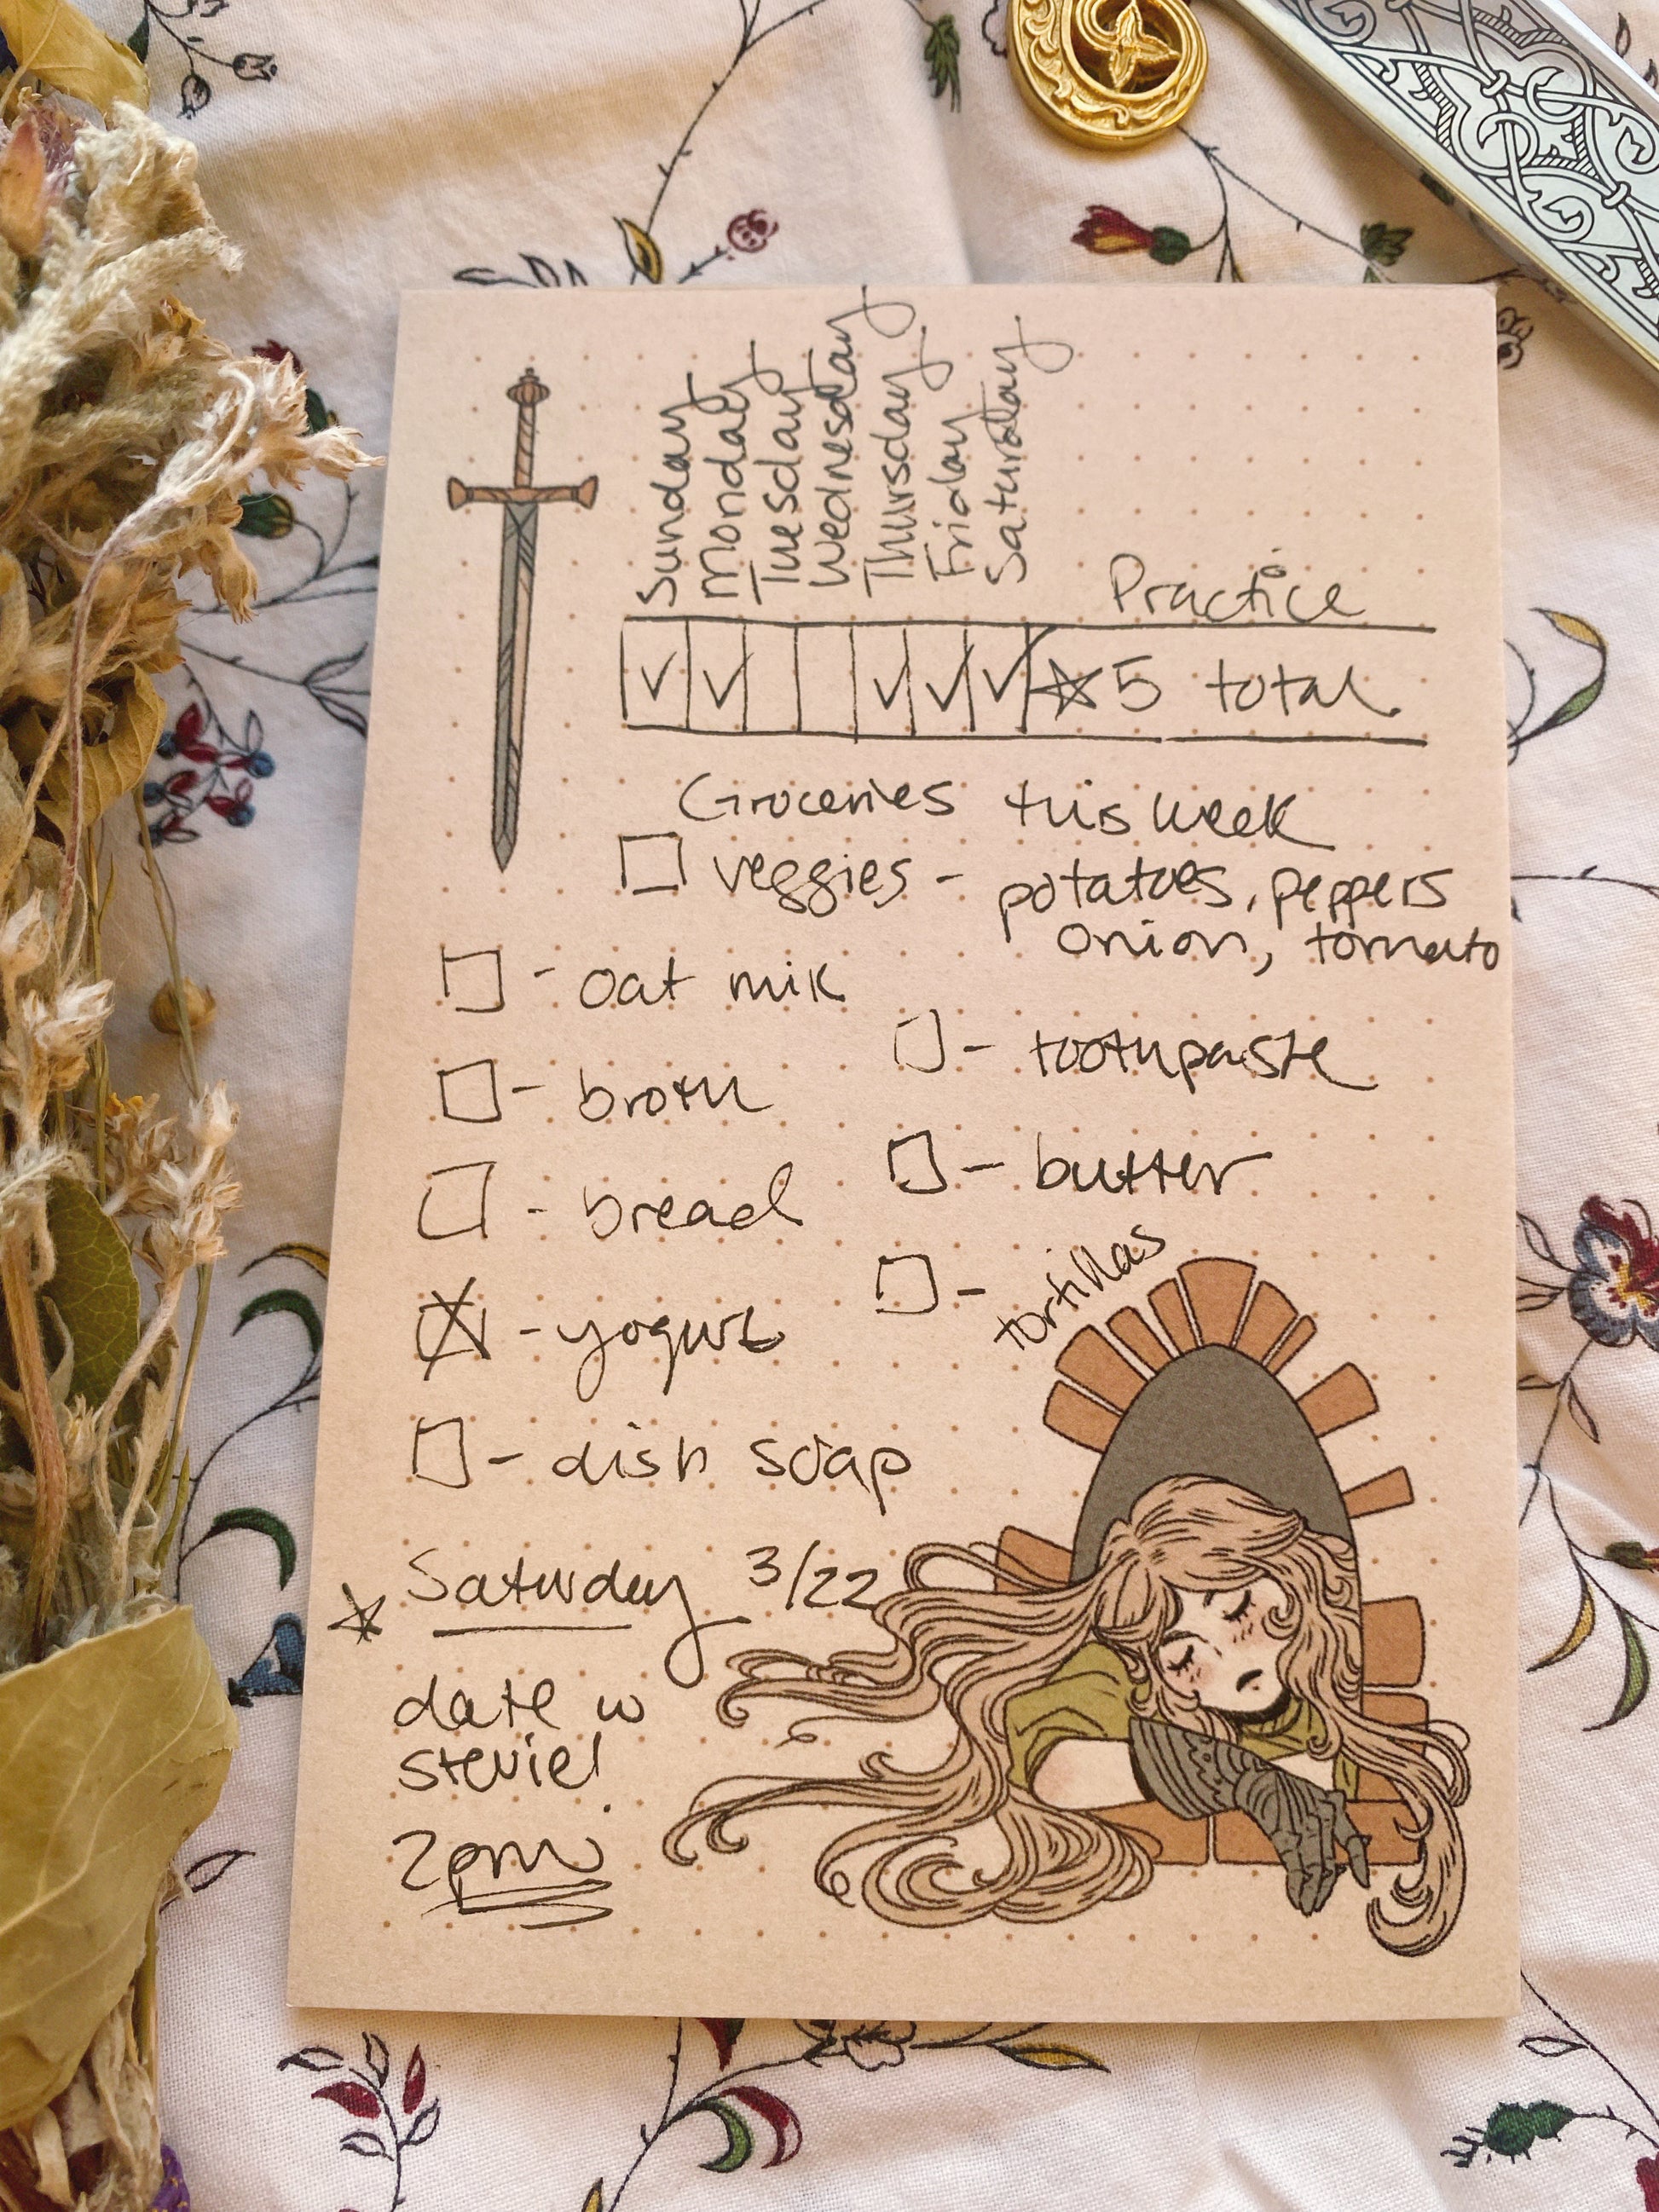 Sunday
Monday
Tuesday
Wednesday
Thursday
Friday
Saturday
Practice
5 total
Groceries this week
veggies - potatoes, peppers
onion, tomato
- oat milk
- broth
- bread
- yogurt
- dish soap
- toothpaste
- butter
- tortillas
Saturday 3/22
date w
stevie!
2pm